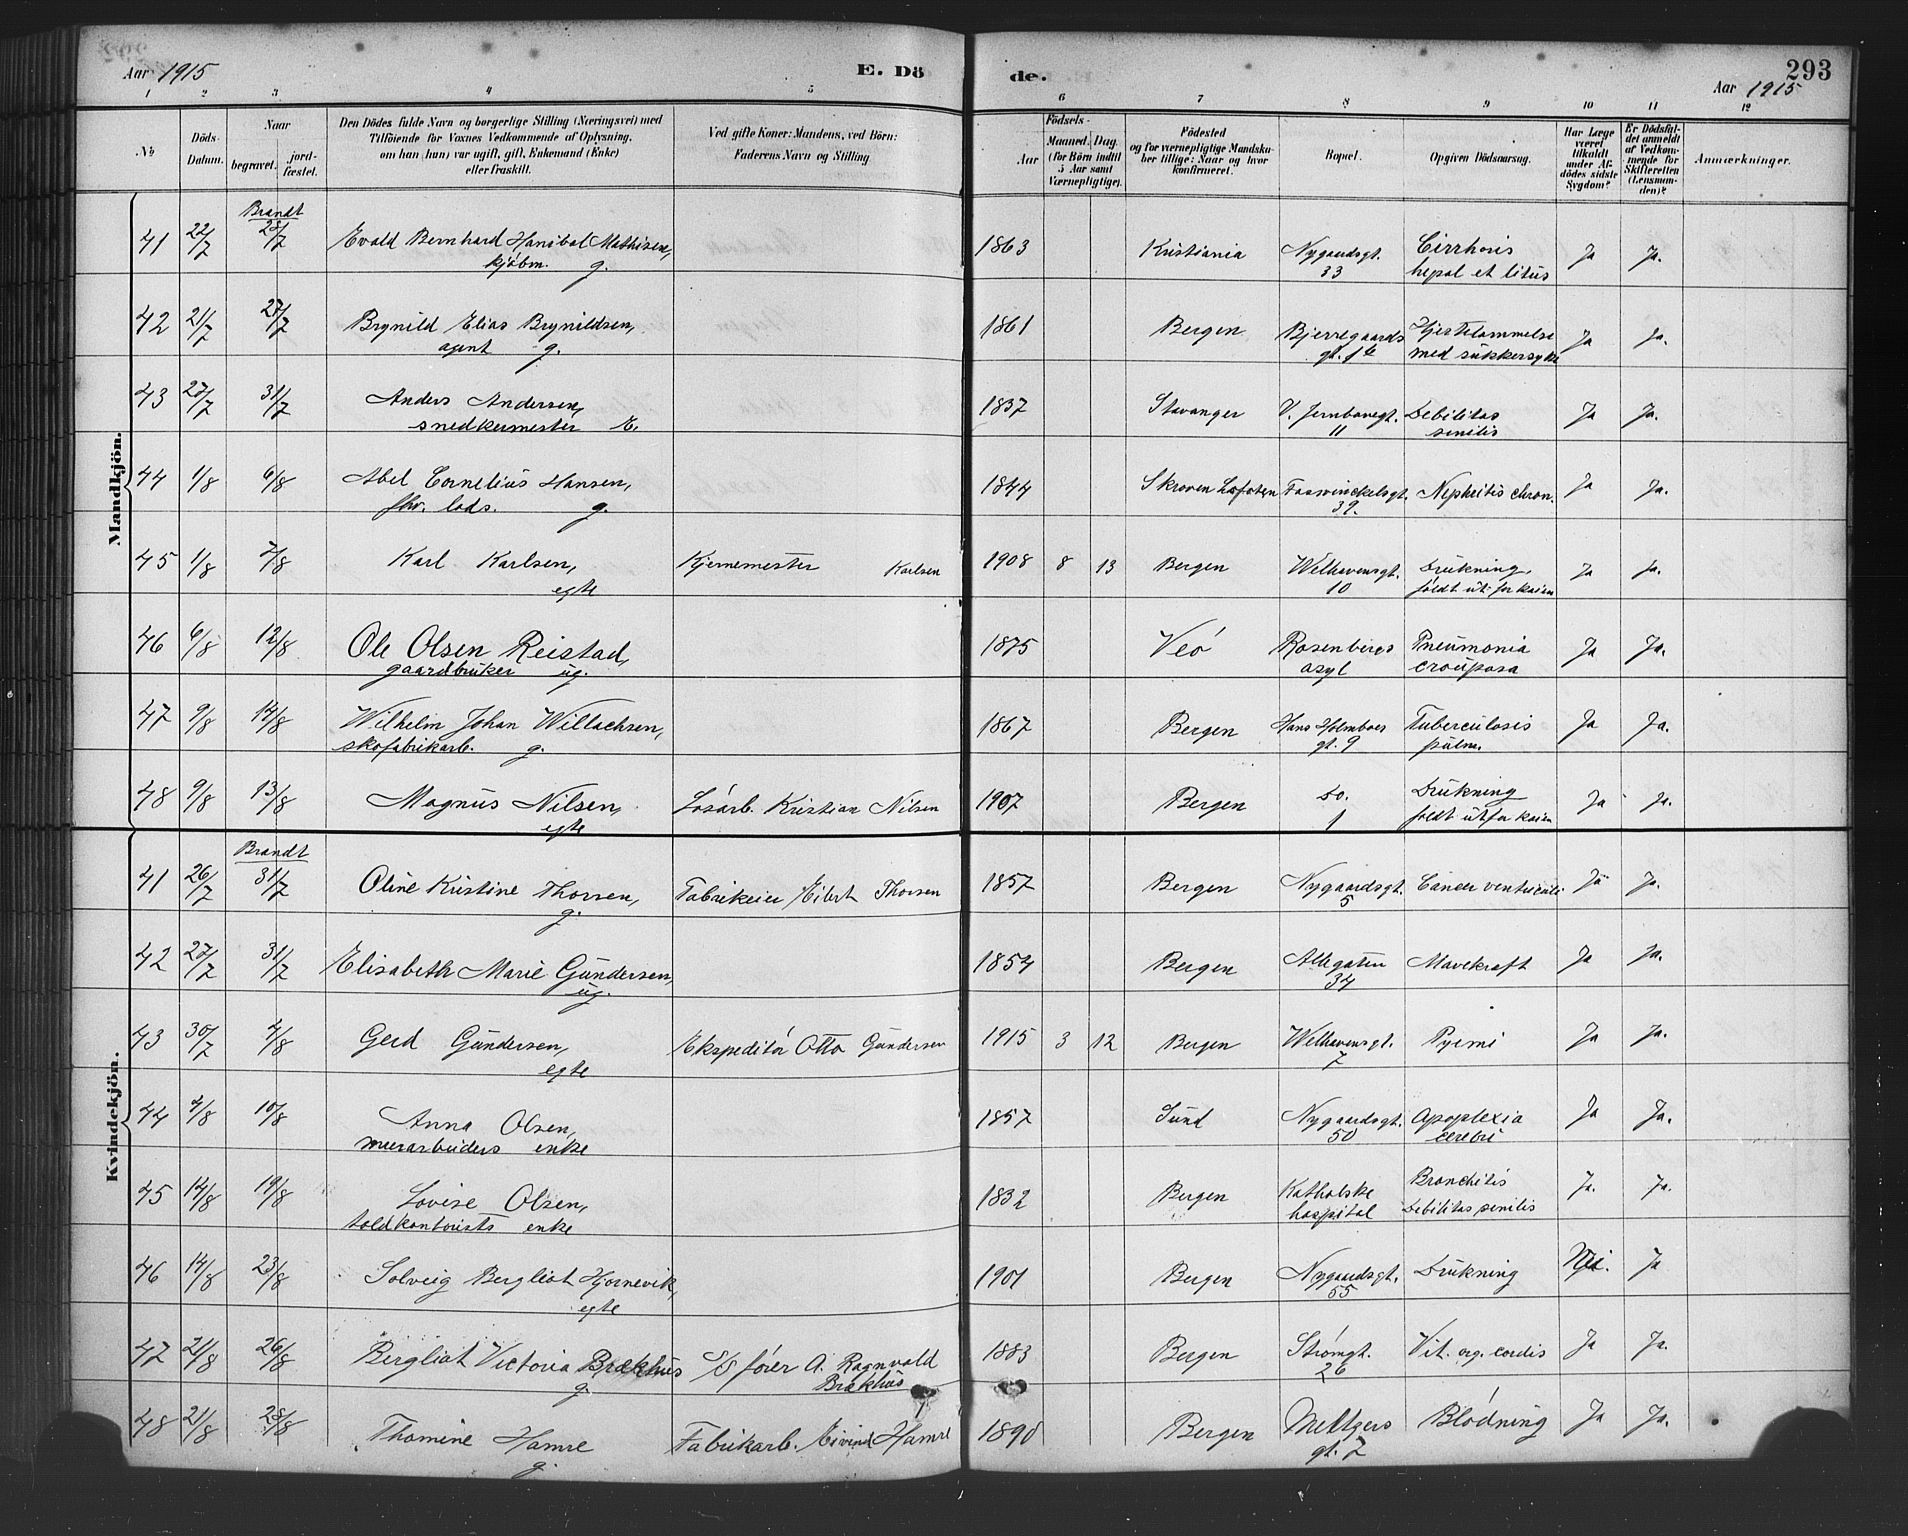 Aar 1915 E. Dö de. Aar 1915 293
1 2 3 4 5 6 7 8 9 10 11 12
No
Döds-Datum.
Naar
begravet. jord-fæstet.
Den Dödes fulde Navn og borgerlige Stilling (Næringsvei) med
Tilföiende for Voxnes Vedkommende af Oplysning,
om han (hun) var ugift, gift, Enkemand (Enke)
eller fraskilt.
Ved gifte Koner: Mandens, ved Börn:
Faderens Navn og Stilling
Födsels-
Aar Maaned. Dag.
(for Börn indtil
5 Aar samt
Værnepligtige).
Födested
og for værnepligtige Mandska-
ber tillige: Naar og hvor
konfirmeret.
Bopæl.
Opgiven Dödsaarsag.
Har Læge
været
tilkaldt
under Af-
dödes sidste
Sygdom?
Er Dödsfal-
det anmeldt
af Vedkom-
mende for
Skifteretten
(Lensman-
den)?
Anmærkninger.
Mandkjön.
Brandt
41 22/7 28/7 Evald Bernhard Hanibal Mathisen, 1863 Kristiania Nygaardsgt. Cirrhosis Ja Ja.
kjøbm. g. 33 hepat et litus
42 21/7 27/7 Brynild Elias Brynildsen, 1861 Bergen Bjerregaards Hjertelammelse Ja Ja.
agent g. gt. med sukkersyke
43 27/7 31/7 Anders Andersen, 1837 Stavanger V. Jernbanegt. Debilitas Ja Ja.
snedkermester E. 11 senilis
44 1/8 6/8 Abel Cornelius Hansen, 1844 Skroven Lofoten Fosswinckelsgt. Nephritis chron. Ja Ja.
fhv. lods. g. 39.
45 1/8 7/8 Karl Karlsen, Kjernemester Karlsen 1908 8 13 Bergen Welhavensgt. Drukning, Ja Ja.
egte 10 faldt ut for kaien
46 6/8 12/8 Ole Olsen Reistad, 1875 Veö Rosenbergs Pneumonia Ja Ja.
gaardbruker ug. asyl crouposa
47 9/8 14/8 Wilhelm Johan Willachsen, 1867 Bergen Hans Holmboes Tuberculosis Ja Ja.
skofabrikarb. g. gt. 9 pulm.
48 9/8 13/8 Magnus Nilsen, Løsarb. Kristian Nilsen 1907 Bergen Do. Drukning Ja Ja.
egte 1 faldt ut for kaien
Kvindekjön.
Brandt
41 26/7 31/7 Oline Kristine Thorsen, Fabrikeier Eilert Thorsen 1857 Bergen Nygaardsgt. Cancer ventriculi Ja Ja.
g. 5
42 27/7 31/7 Elisabeth Marie Gundersen, 1854 Bergen Allegaten Mavekraft Ja Ja.
ug. 34
43 30/7 4/8 Gerd Gundersen, Ekspeditør Otto Gundersen 1915 3 12 Bergen Welhavensgt. Pyemi Ja Ja.
egte 7
44 4/8 10/8 Anna Olsen, 1857 Sund Nygaardsgt. Apoplexia Ja Ja.
murarbeiders enke 50 cerebri
45 14/8 19/8 Lovise Olsen, 1832 Bergen Katholske Bronchitis Ja. Ja.
toldkontorists enke hospital Debilitas senilis
46 14/8 23/8 Solveig Bergliot Hjørnevik, 1901 Bergen Nygaardsgt. Drukning Nei. Ja
egte 55
47 21/8 26/8 Bergliot Victoria Brækhus S/S fører A. Ragnvald 1883 Bergen Strømgt. Vit. org. cordis Ja Ja.
g. Brækhus 26
48 21/8 28/8 Thomine Hamre Fabrikarb. Eivind Hamre 1890 Bergen Meltzers Blødning Ja Ja.
g. gt. 7